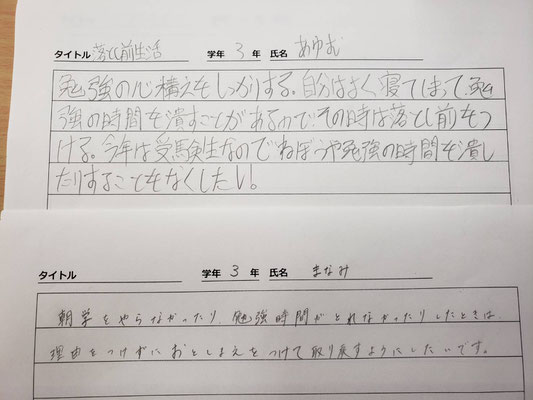 タイトル 落とし前生活 学年 3 年 氏名 あゆむ
勉強の心構えをしっかりする。自分はよく寝てしまって、勉
強の時間を潰すことがあるので、その時は落とし前をつ
ける。今年は受験生なのでねぼうや勉強の時間を潰し
たりすることをなくしたい!
タイトル 学年 3 年 氏名 まなみ
朝学をやらなかったり、勉強時間がとれなかったりしたときは、
理由をつけずにおとしまえをつけて取り戻すようにしたいです。